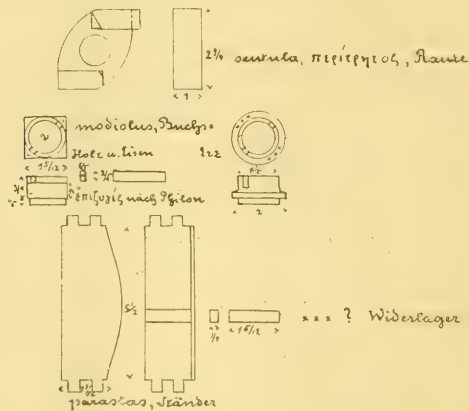 2¾ scutula, περίτρητος, Raute
1
modiolus, Buchse
Holz u. Eisen
Erz
1 5/12
ἐπιζυγίς nach Philon
2
5½
x x x ? Widerlager
1 5/12
parastas, Ständer